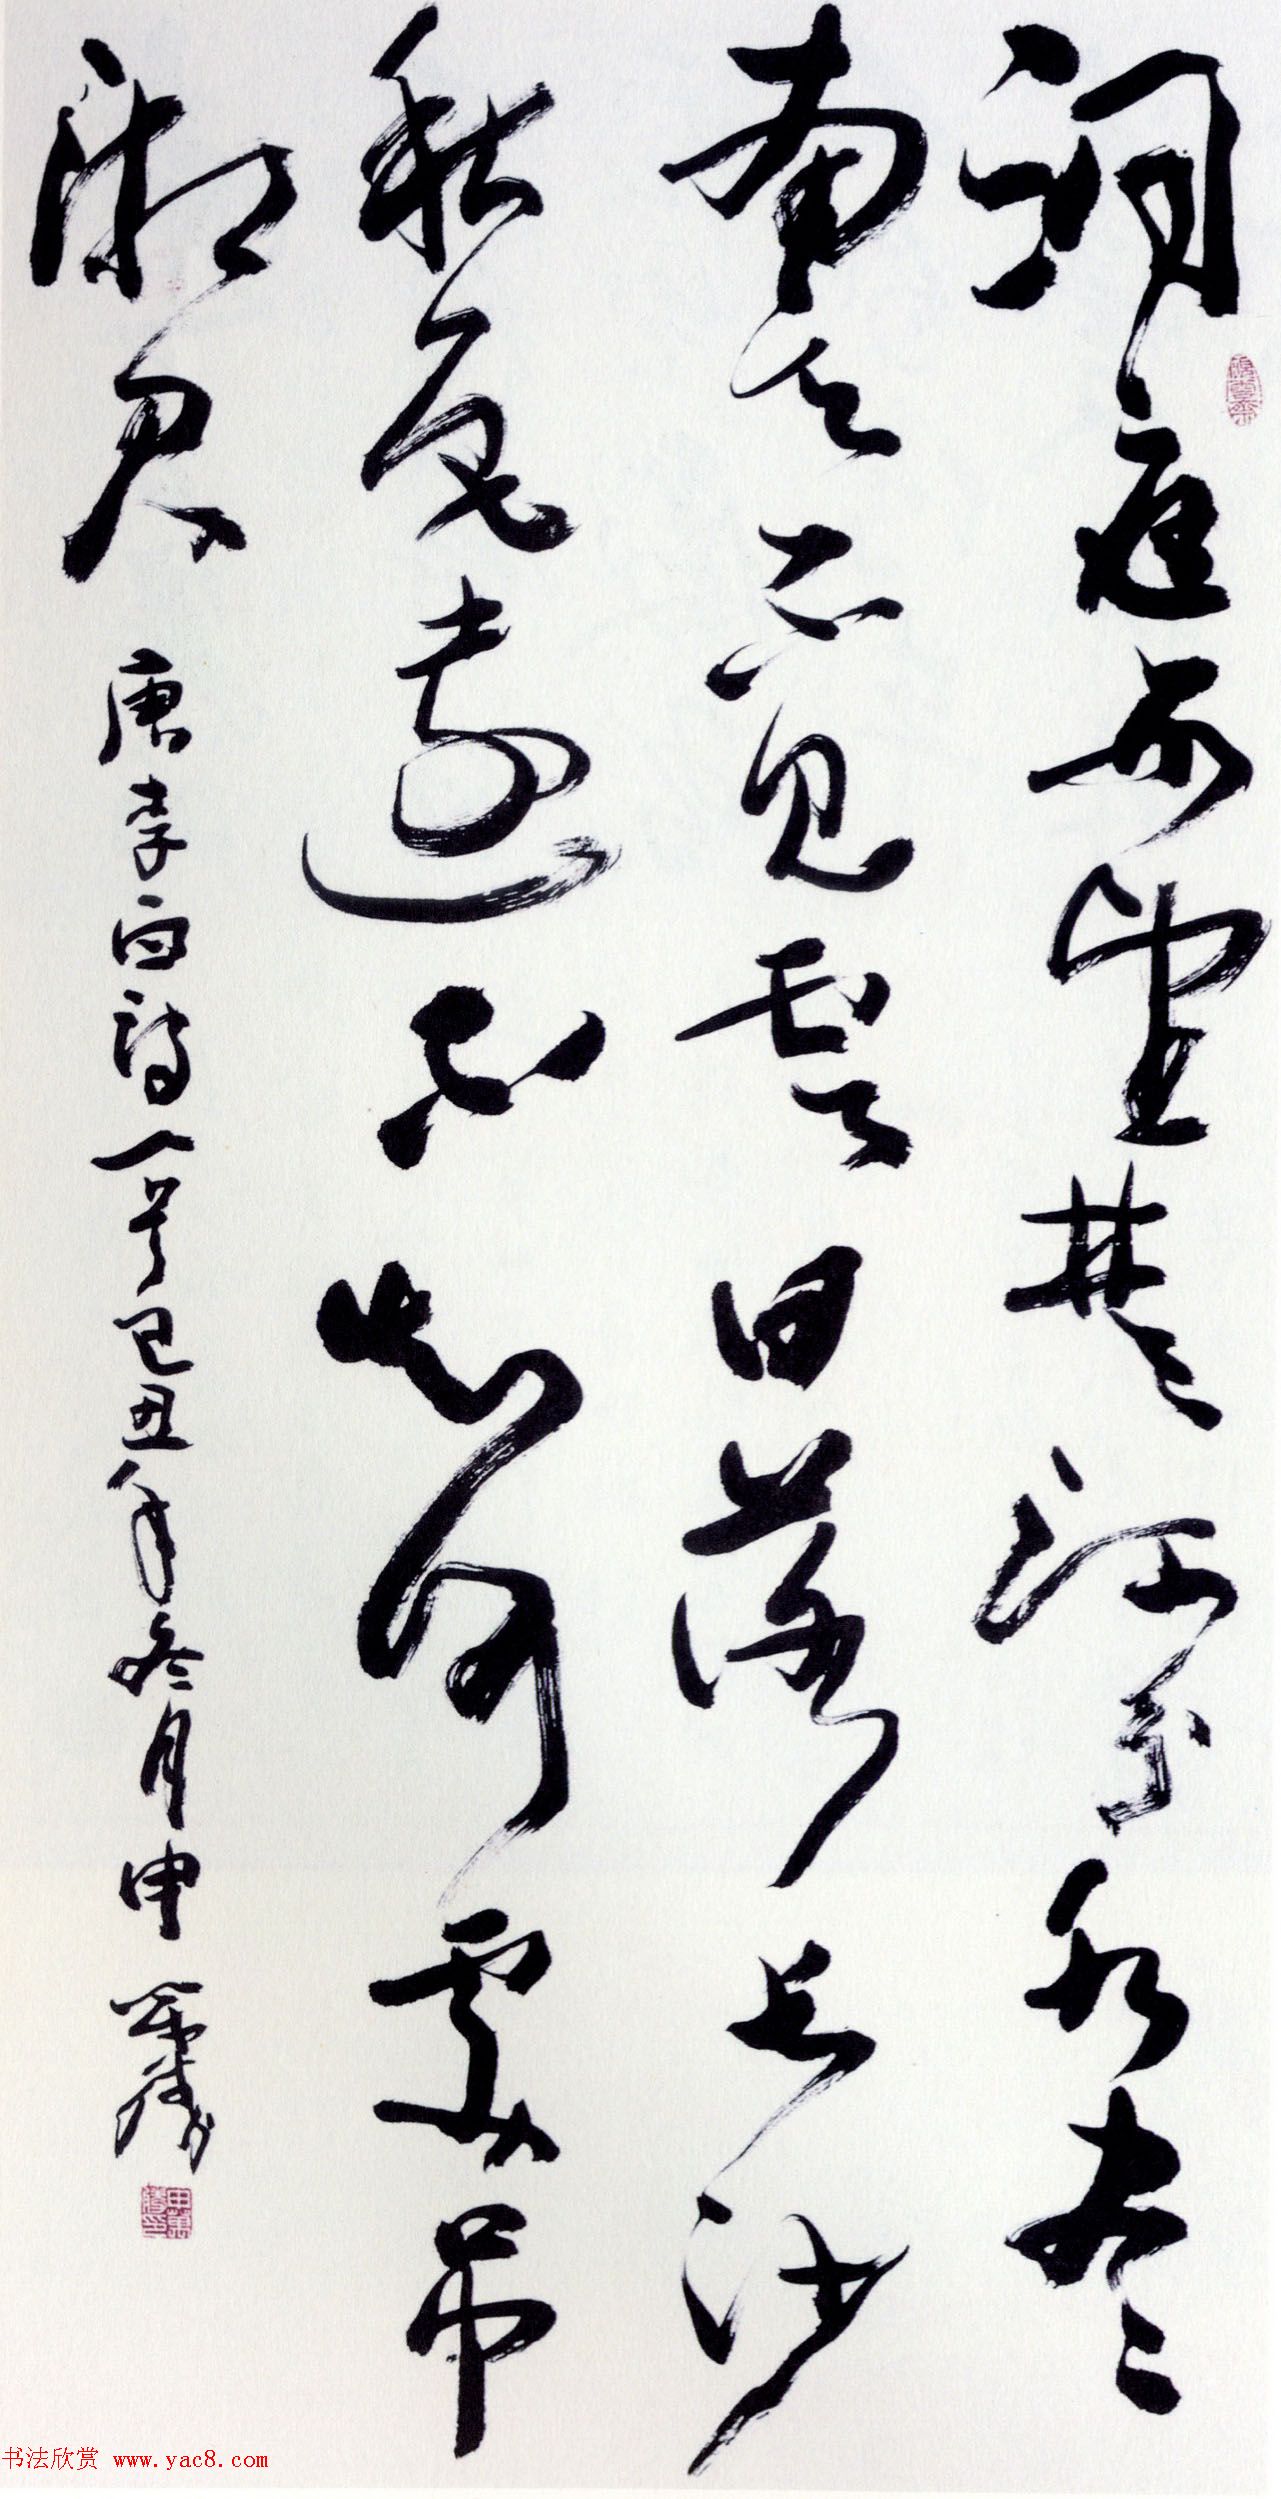 洞庭西望楚江分水尽
南天不见雲日落长沙
秋色遠不知何處吊
湘君 唐李白詩一首己丑年冬月申萬勝
书法欣赏 www.yac8.com